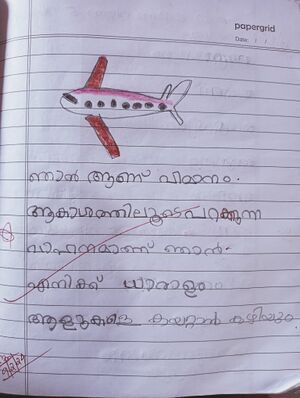 papergrid
Date: / /
ഞാൻ ആണ് വിമാനം.
ആകാശത്തിലൂടെ പറക്കുന്ന
വാഹനമാണ് ഞാൻ.
എനിക്ക് ധാരാളം
ആളുകളെ കയറ്റാൻ കഴിയും